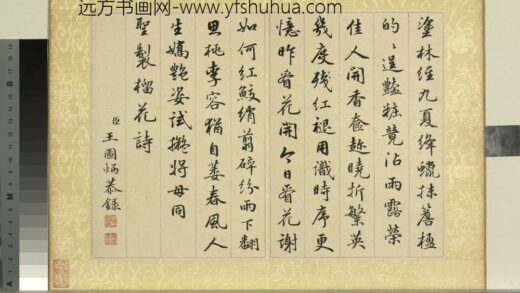 远方书画网-www.yfshuhua.com
塗林經九夏絳蠟抹簷楹
的的逞豔粧競沾雨露榮
佳人開香奩趂曉折繁英
幾度殘紅褪用識時序更
憶昨看花開今日看花謝
如何紅鮫綃翦碎紛雨下翻
思桃李容猶自萎春風人
生嬌艷姿試擬將毋同
聖製榴花詩
臣王圖炳恭錄